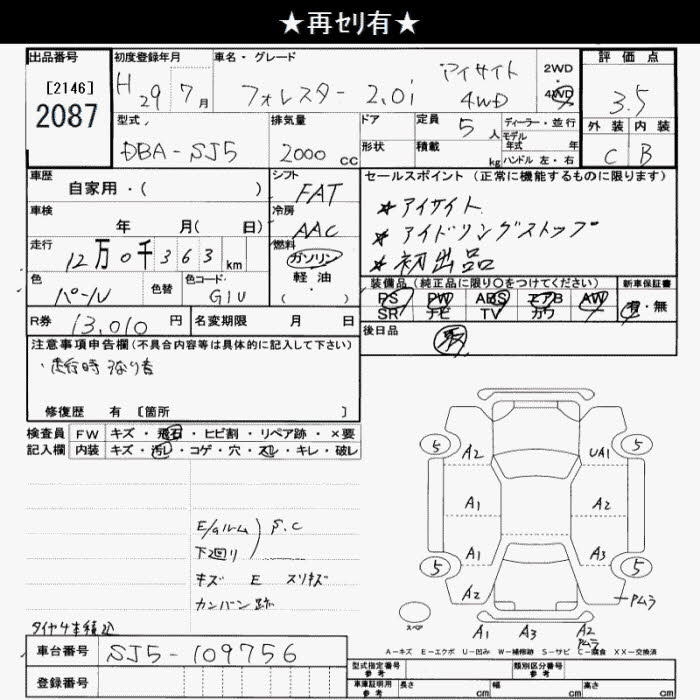 ★再セリ有★
出品番号
[2146]
2087
初度登録年月
H29 7月
車名・グレード
フォレスター 2.0i アイサイト 4WD
2WD・4WD
評価点
3.5
外装 内装
C B
型式
DBA-SJ5
排気量
2000 cc
ドア
形状
定員
5人
積載
kg
ディーラー・並行
モデル年式 年
ハンドル 左・右
車歴
自家用・( )
シフト
FAT
冷房
AAC
車検
年 月( 日)
走行
12万0千363km
燃料
ガソリン
軽油
・( )
色
パール
色替
色コード
G1U
R券
13,010円
名変期限 月 日
セールスポイント (正常に機能するものに限ります)
★アイサイト
★アイドリングストップ
★初出品
装備品 (純正品に限り○をつけてください)
新車保証書
PS PW ABS エアB AW
SR ナビ TV カワ
有・無
後日品
取
注意事項申告欄 (不具合内容等は具体的に記入して下さい)
・走行時
修復歴 有 [箇所 ]
検査員 FW キズ・飛石・ヒビ割・リペア跡・×要
記入欄 内装 キズ・汚レ・コゲ・穴・スレ・キレ・破レ
E/gルーム
下廻り
S.C
キズ E スリキズ
カンバン跡
タイヤ4本積込
車台番号 SJ5-109756
登録番号
5 A2 UA1 5
A1 A2
A1 A3
5 A2 5
Pムラ
スペア
A1 A3 A2
Pムラ
A=キズ E=エクボ U=凹み W=補修跡 S=サビ C=腐食 XX=交換済
型式指定番号 参考
類別区分番号 参考
車庫証明用 参考 長さ cm 幅 cm 高さ cm